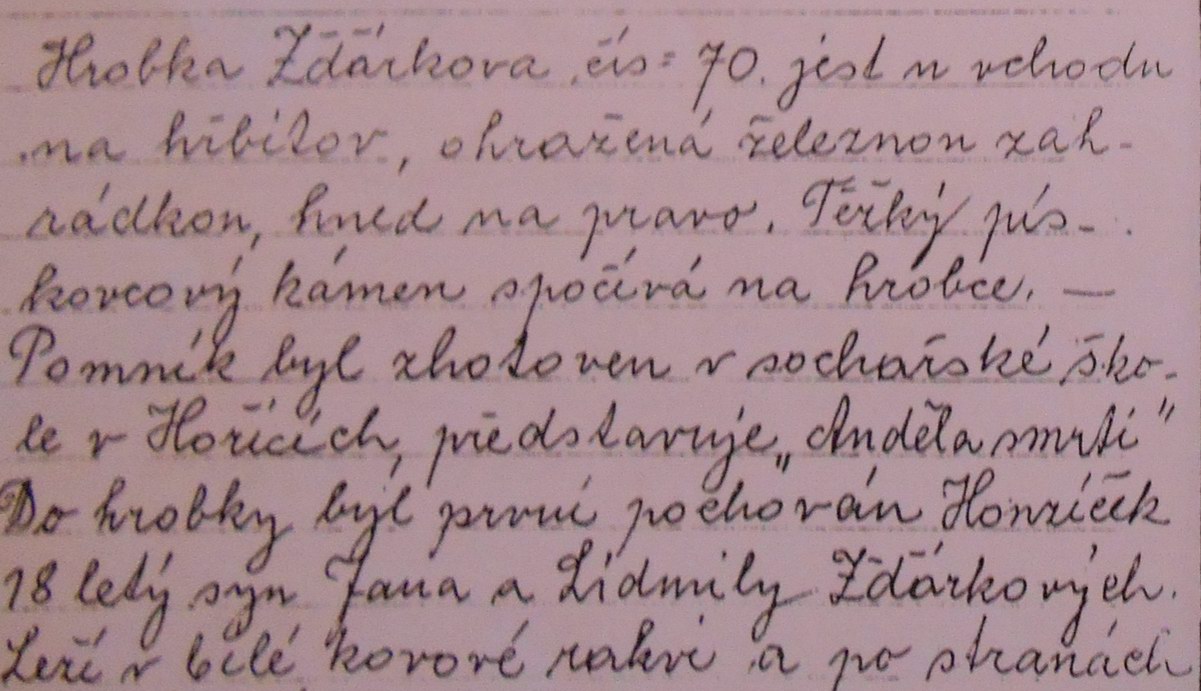 Hrobka Žďárkova čís= 70. jest u vchodu
na hřbitov, ohražená železnou zah-
rádkou, hned na pravo. Těžký pís-
kovcový kámen spočívá na hrobce. —
Pomník byl zhotoven v sochařské ško-
le v Hořicích, představuje „Anděla smrti"
Do hrobky byl první pochován Honzíček
18 letý syn Jana a Lidmily Žďárkových.
Leží v bílé kovové rakvi a po stranách